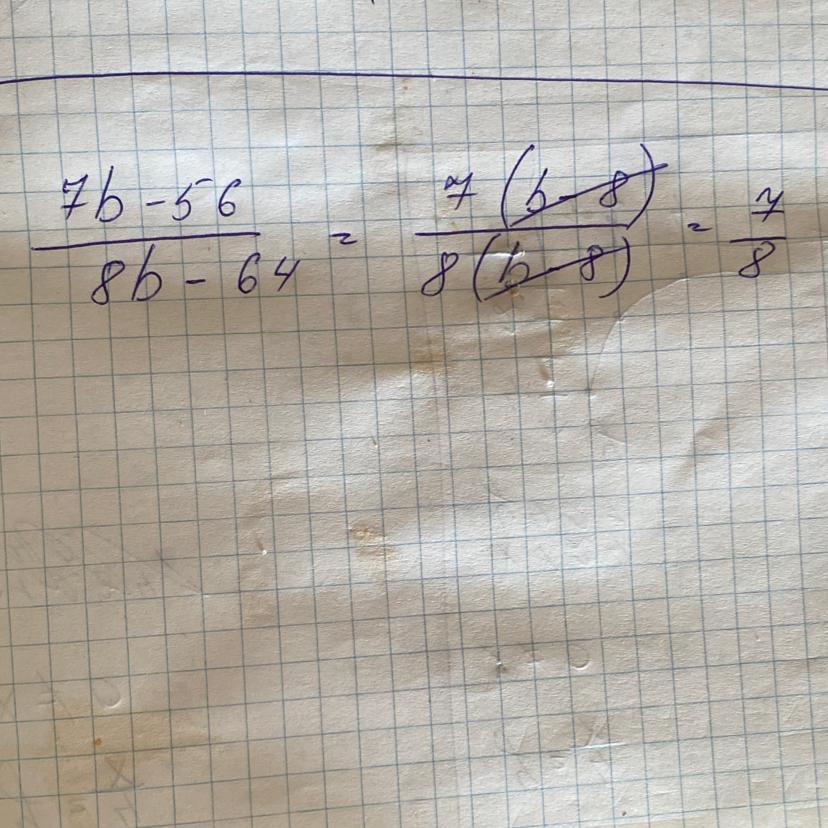 7b - 56 / 8b - 64 = 7 (b - 8) / 8 (b - 8) = 7 / 8